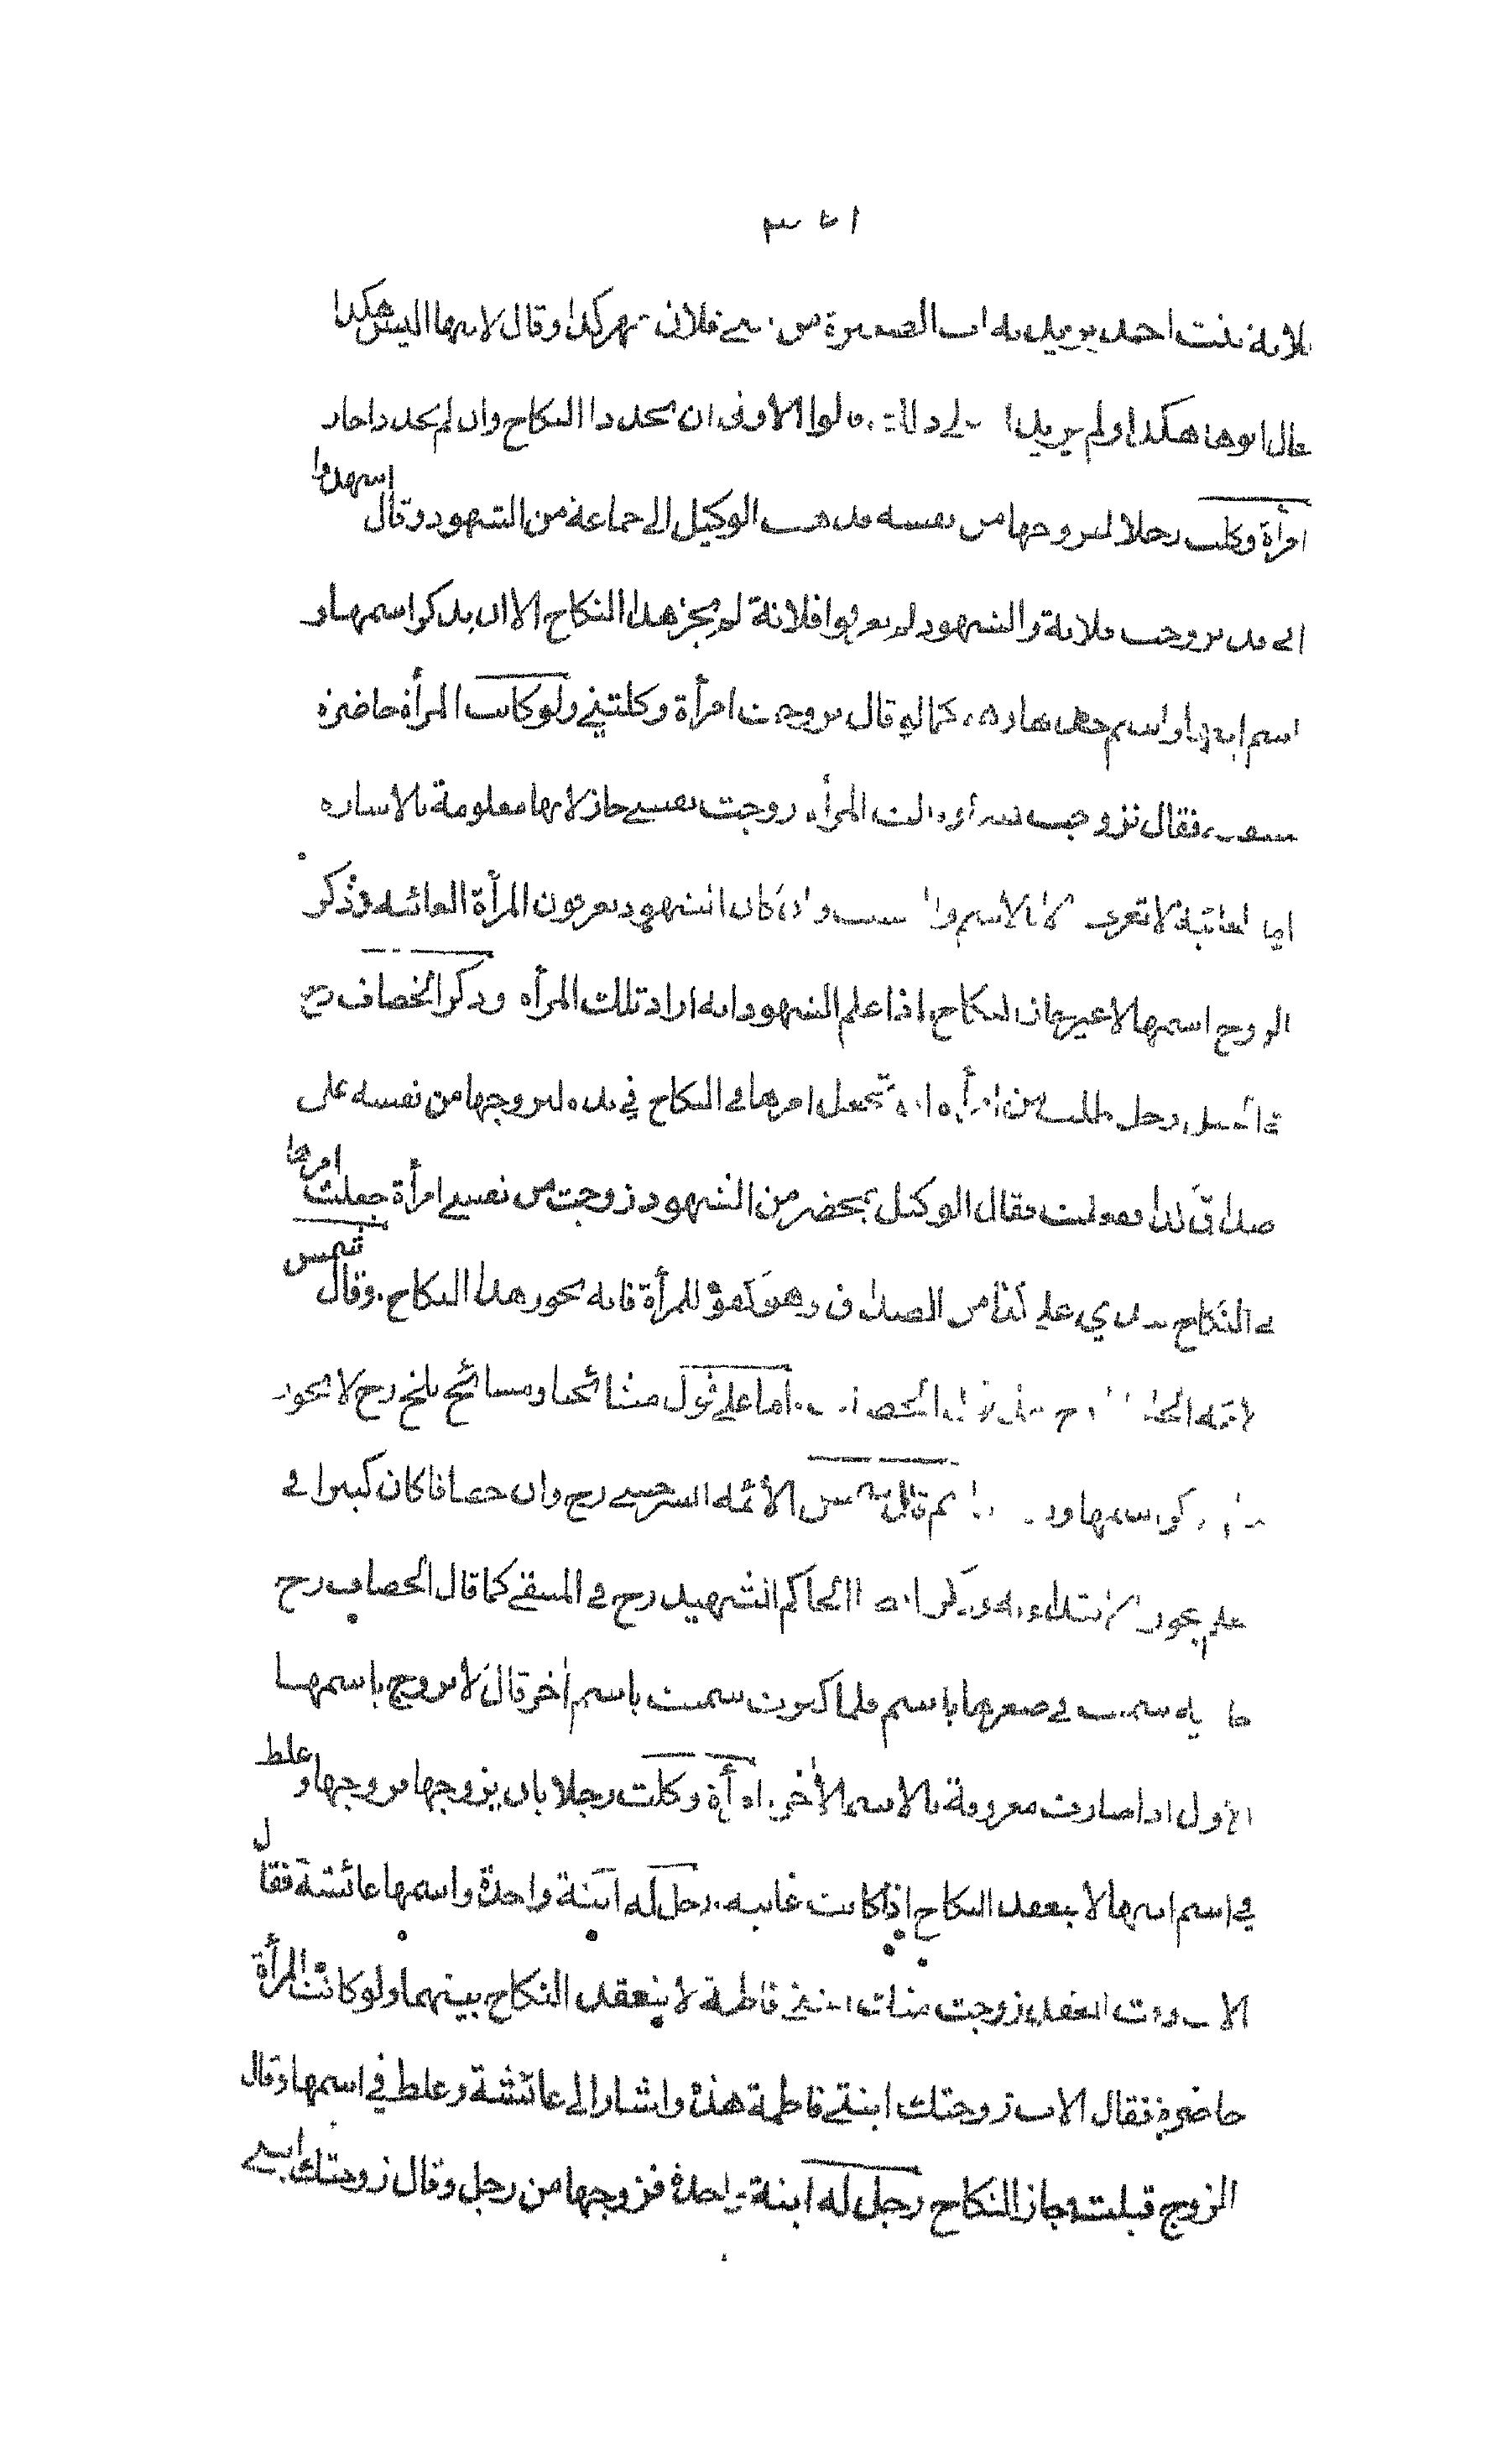 فلانة بنت احمد يريد به اب الصغيرة من فلان بمهر كذا وقال لابيها اليس هكذا
فقال ابوها هكذا ولم يزيدا على ذلك قالوا الاولى ان يجددا النكاح وان لم يجددا جاز
امرأة وكلت رجلا ليزوجها من نفسه فذهب الوكيل الى جماعة من الشهود وقال اشهدوا
اني قد تزوجت فلانة والشهود لم يعرفوا فلانة لم يجز هذا النكاح الا ان يذكر اسمها و
اسم ابيها واسم جدها كما لو قال تزوجت امرأة وكلتني ولو كانت المرأة حاضرة
متنقبة فقال تزوجت هذه وقالت المرأة زوجت نفسي جاز لانها معلومة بالاشارة
اما الغائبة لا تعرف الا بالاسم والنسب وان كان الشهود يعرفون المرأة الغائبة فذكر
الزوج اسمها لا غير جاز النكاح اذا علم الشهود انه اراد تلك المرأة وذكر الخصاف رح
في الحيل رجل طلب من امرأة ان تجعل امرها في النكاح في يده ليزوجها من نفسه على
صداق كذا ففعلت فقال الوكيل بمحضر من الشهود زوجت من نفسي امرأة جعلت امرها
في النكاح بيدي على كذا من الصداق وهو كفؤ للمرأة فانه يجوز هذا النكاح. وقال شمس
الائمة الحلوائي رح هذا قول الخصاف. اما على قول مشائخنا ومشائخ بلخ رح لا يجوز
ما لم يذكر اسمها ونسبها ثم قال شمس الأئمة السرخسي رح وان خصافا كان كبيرا في
العلم يجوز الاقتداء به وذكر الحاكم الشهيد رح في المنتقى كما قال الخصاف رح
جارية سميت في صغرها باسم فلما كبرت سميت باسم أخر قال لا تزوج باسمها
الاول اذا صارت معروفة بالاسم الأخر. امرأة وكلت رجلا بان يزوجها فزوجها وغلط
في اسم ابيها لا ينعقد النكاح اذا كانت غائبة. رجل له ابنة واحدة واسمها عائشة فقال
الاب وقت العقد زوجت منك ابنتي فاطمة لا ينعقد النكاح بينهما ولو كانت المرأة
حاضرة فقال الاب زوجتك ابنتي فاطمة هذه واشار الى عائشة وغلط في اسمها وقال
الزوج قبلت جاز النكاح رجل له ابنة واحدة فزوجها من رجل وقال زوجتك ابنتي